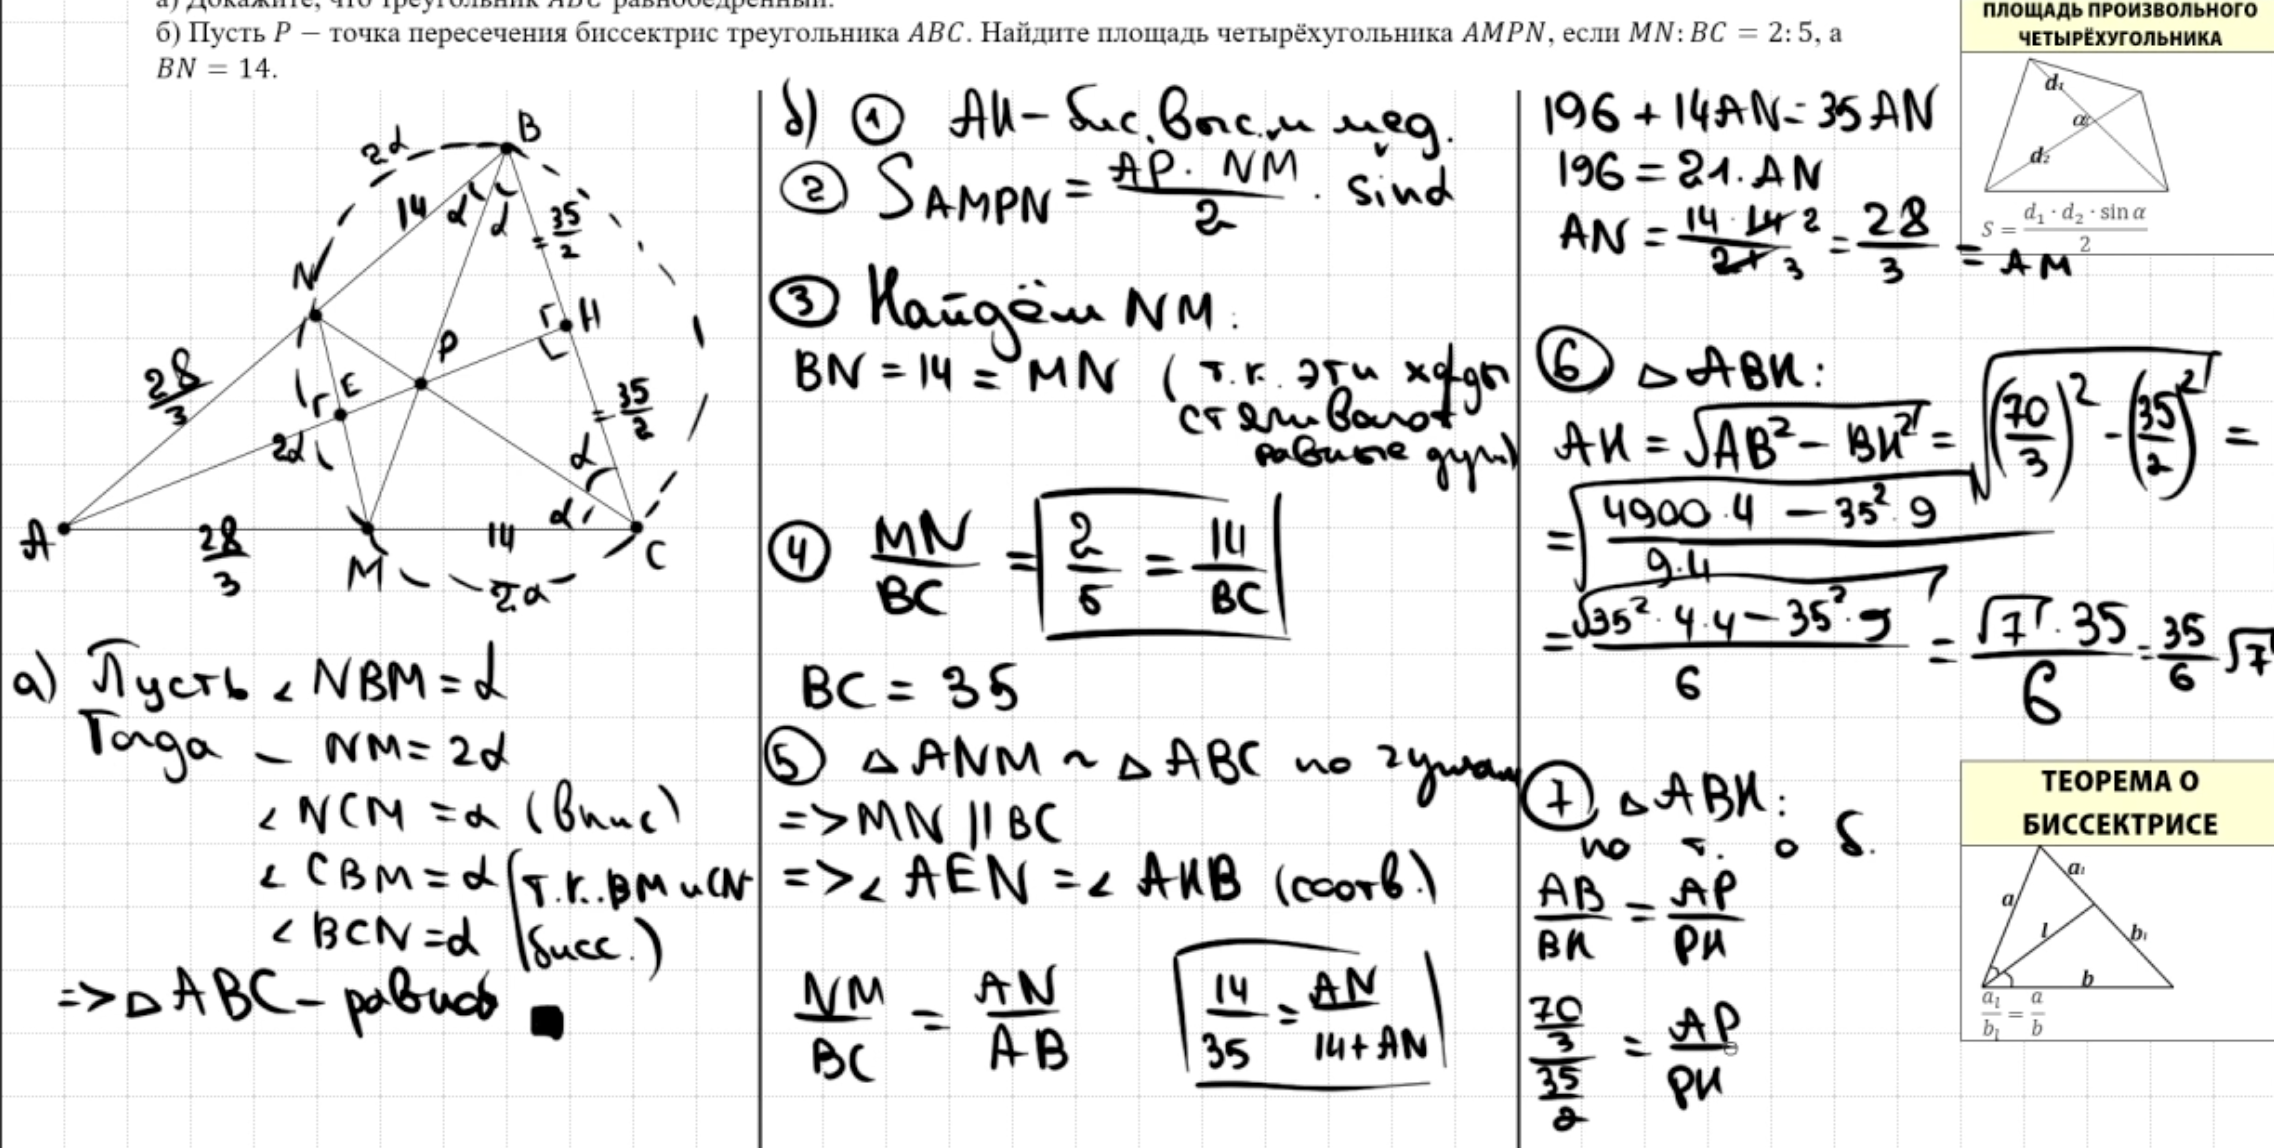 а) Докажите, что треугольник ABC равнобедренный.
б) Пусть P − точка пересечения биссектрис треугольника ABC. Найдите площадь четырёхугольника AMPN, если MN: BC = 2: 5, а
BN = 14.
2α
B
14 α α
= 35/2
N
H
P
28/3
E
= 35/2
2α
α
A
28/3
M
14
α
C
2α
а) Пусть ∠ NBM = α
Тогда ⌣ NM = 2α
∠ NCM = α (впис)
∠ CBM = α (т.к. BM и CN
∠ BCN = α бисс.)
=> △ ABC − равноб ■
б) ① AH − бис. выс. и мед.
② S AMPN = AP · NM / 2 · sin α
③ Найдём NM:
BN = 14 = MN ( т.к. эти хорды
стягивают
равные дуги)
④ MN/BC = 2/5 = 14/BC
BC = 35
⑤ △ ANM ~ △ ABC по 2 углам
=> MN || BC
=> ∠ AEN = ∠ AHB (соотв.)
NM/BC = AN/AB
14/35 = AN/14+AN
196 + 14AN = 35AN
196 = 21 · AN
AN = 14 · 14 2 / 21 3 = 28/3 = AM
⑥ △ ABH:
AH = √AB² − BH² = √(70/3)² − (35/2)² =
= √4900 · 4 − 35² · 9 / 9 · 4
= √35² · 4 · 4 − 35² · 9 / 6 = √7 · 35 / 6 = 35/6 √7
⑦ △ ABH:
по т. о б.
AB/BH = AP/PH
70/3 / 35/2 = AP/PH
ПЛОЩАДЬ ПРОИЗВОЛЬНОГО
ЧЕТЫРЁХУГОЛЬНИКА
d₁
α
d₂
S = d₁ · d₂ · sin α / 2
ТЕОРЕМА О
БИССЕКТРИСЕ
a₁
a
l
b₁
b
a₁/b₁ = a/b